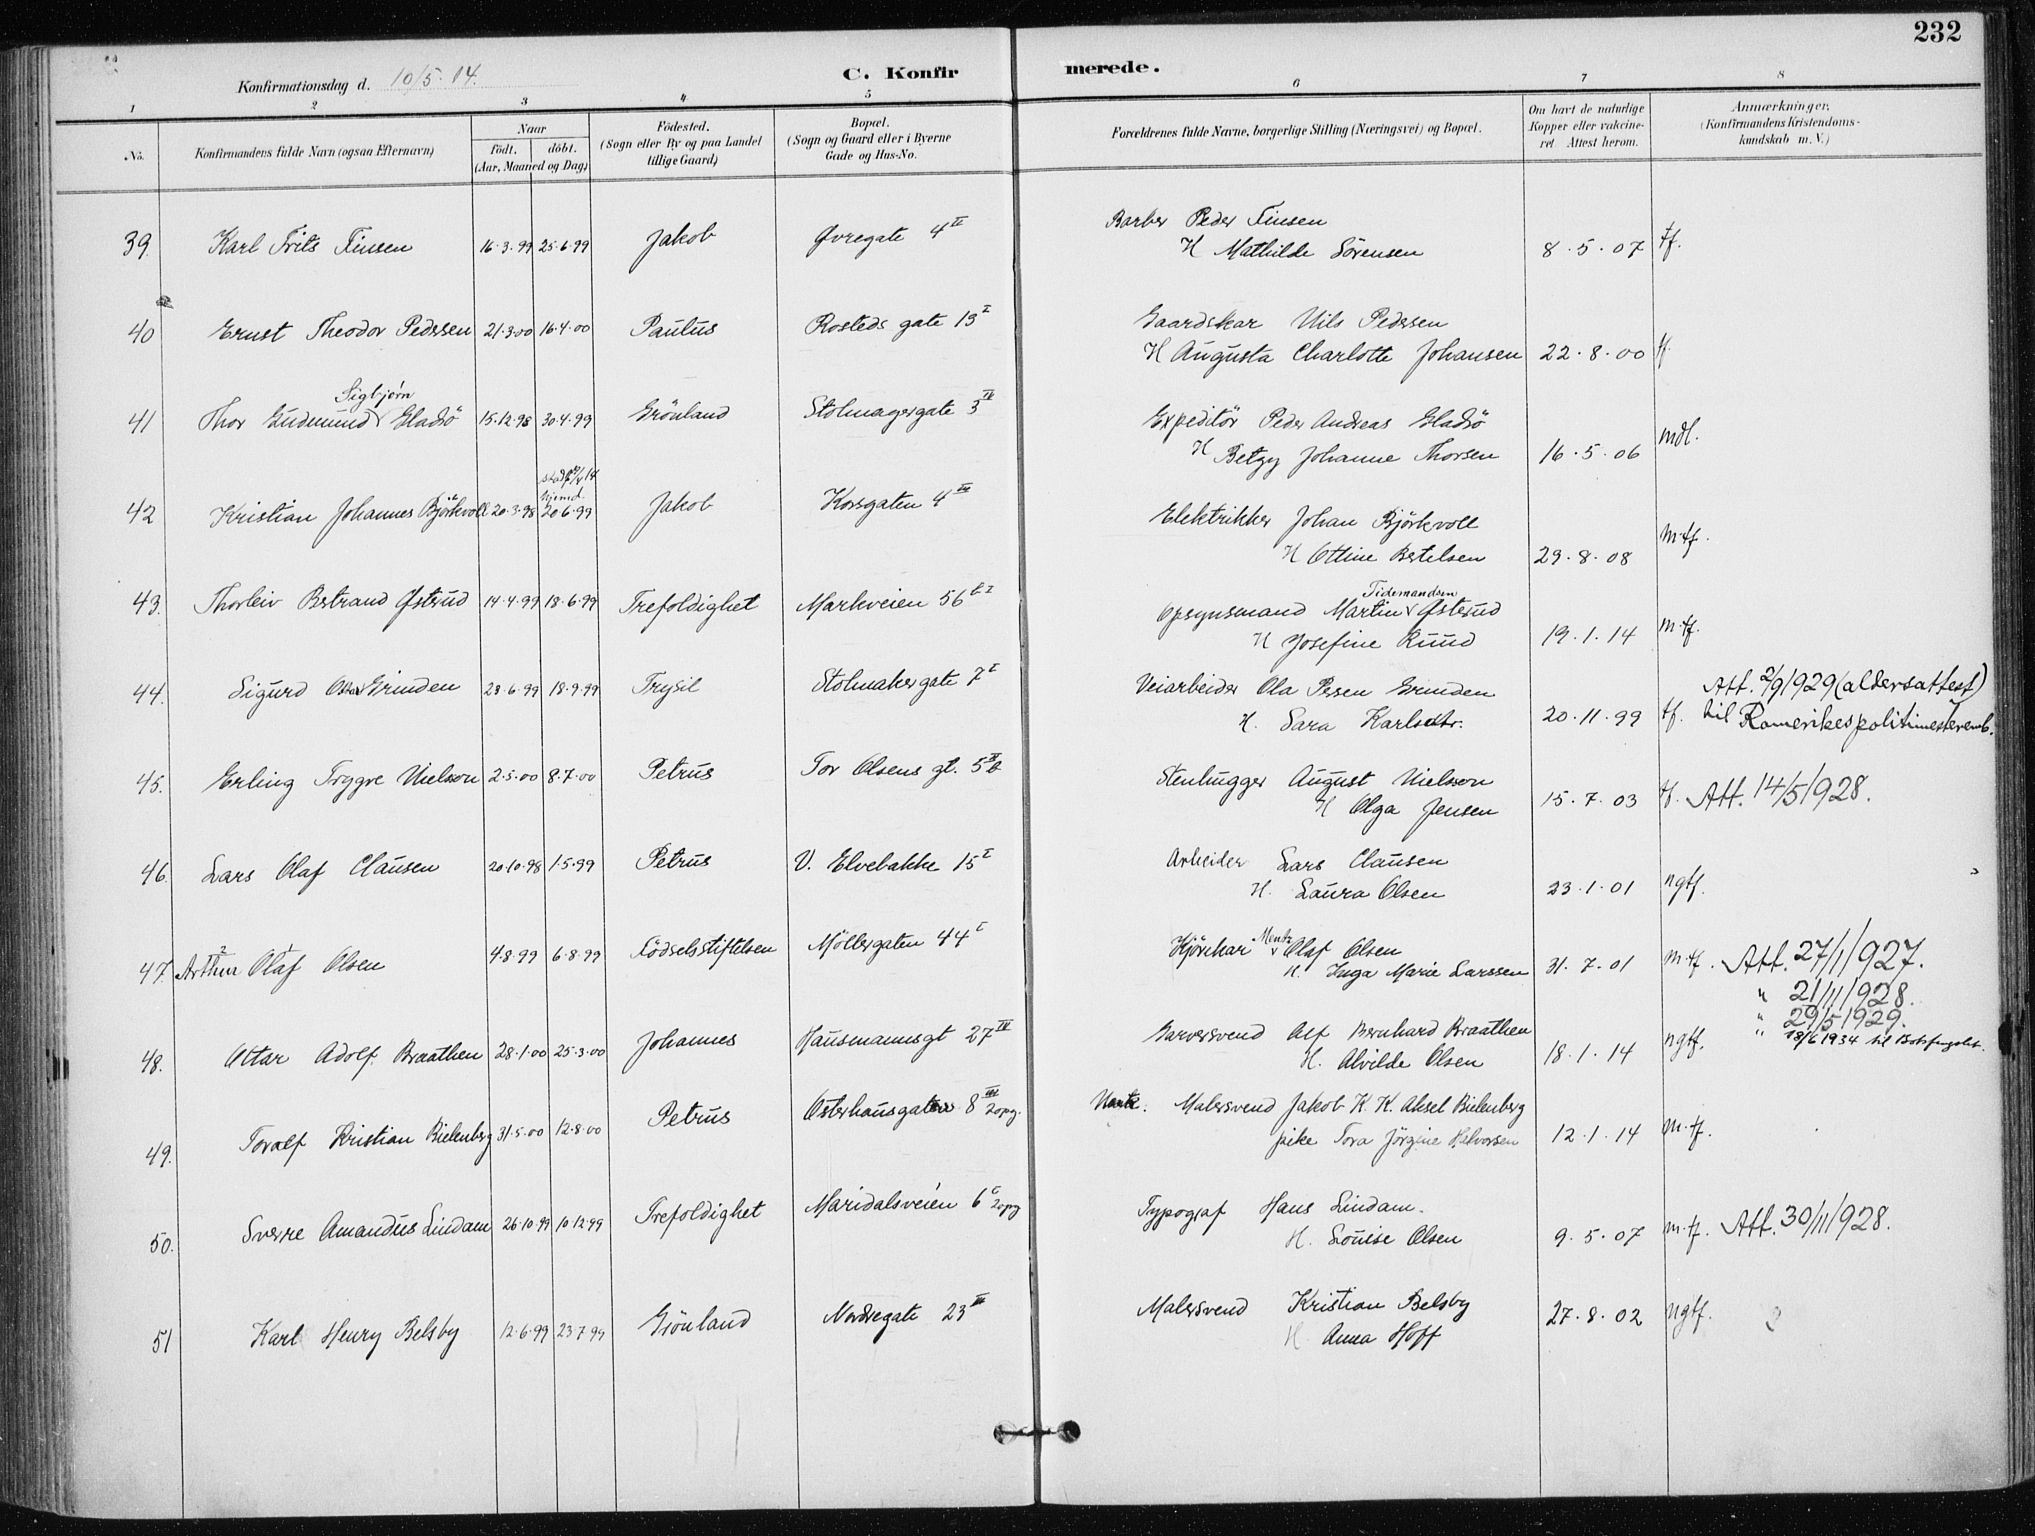 232
Konfirmationsdag d. 10/5. 14.
C. Konfirmerede.
1 2 3 4 5 6 7 8
No. Konfirmandens fulde Navn (ogsaa Efternavn) Naar födt. döbt. (Aar, Maaned og Dag) Födested. (Sogn eller By og paa Landet tillige Gaard) Bopæl. (Sogn og Gaard eller i Byerne Gade og Hus-No. Forældrenes fulde Navne, borgerlige Stilling (Næringsvei) og Bopæl. Om havt de naturlige Kopper eller vakcineret Attest herom. Anmærkninger. (Konfirmandens Kristendomskundskab m. V.)
39. Karl Frits Finsen 16.3.99 25.6.99 Jakob Øvregate 4 II Barber Peder Finsen
H Mathilde Sörensen 8.5.07 tf.
40 Ernst Theodor Pedersen 21.3.00 16.4.00 Paulus Rosteds gate 13 I Gaardskar Nils Pedersen
H Augusta Charlotte Johansen 22.8.00 tf.
Sigbjörn
41 Thor Gudmund Gladsö 15.12.98 30.4.99 Grönland Stolmagergate 3 IV Expeditör Peder Andreas Gladsö
H Betzy Johanne Thorsen 16.5.06 mdl.
hjemd.
42 Kristian Johannes Björkvoll 20.3.98 20.6.99 Jakob Korsgaten 4 III Elektrikker Johan Björkvoll
H Ottine Bertelsen 29.8.08 m.tf.
Tidemandsen
43. Thorleiv Bertrand Østerud 14.4.99 18.6.99 Trefoldighet Markveien 56 b I Opsynsmand Martin Østerud
H Josefine Ruud 19.1.14 m.tf.
44. Sigurd Grinden 23.6.99 18.9.99 Trysil Stolmakergate 7 I Veiarbeider Ola Persen Grinden Att. 2/9 1929 (aldersattest)
H. Sara Karlsdtr. 20.11.99 tf. til Romerikes politimesteremb.
45. Erling Trygve Nielsson 2.5.00 8.7.00 Petrus Tor Olsens gt. 5 b Stenhugger August Nielsson
H Olga Jensen 15.7.03 tf. Att. 14/5 1928.
46. Lars Olaf Clausen 20.10.98 1.5.99 Petrus V. Elvebakke 15 I Arbeider Lars Clausen
H. Laura Olsen 23.1.01 ngtf.
47. Arthur Olaf Olsen 4.8.99 6.8.99 Födselsstiftelsen Möllergaten 44 I Kjörekar Mentz Olaf Olsen
H. Inga Marie Larssen 31.7.01 m.tf. Att. 27/1 1927.
" 21/11 1928.
" 29/5 1929.
" 18/6 1934 til Botsfengslet.
48. Ottar Adolf Braathen 28.1.00 25.3.00 Johannes Hausmannsgt 27 IV Garversvend Alf Bernhard Braathen
H. Alvilde Olsen 18.1.14 ngtf.
49. Toralf Kristian Bielenberg 31.5.00 12.8.00 Petrus Osterhausgaten 8 III 2opg. Malersvend Jakob K. K. Aksel Bielenberg
pike Tora Jörgine Halvorsen 12.1.14 m.tf.
50. Sverre Amandus Lindam 26.10.99 10.12.99 Trefoldighet Maridalsveien 6 I 2opg Typograf Hans Lindam.
H. Louise Olsen 9.5.07 m.tf. Att. 30/11 1928.
51 Karl Henry Belsby 12.6.99 23.7.99 Grönland Nordregate 23 III Malersvend Kristian Belsby
H Anna Hoff 27.8.02 ngtf.